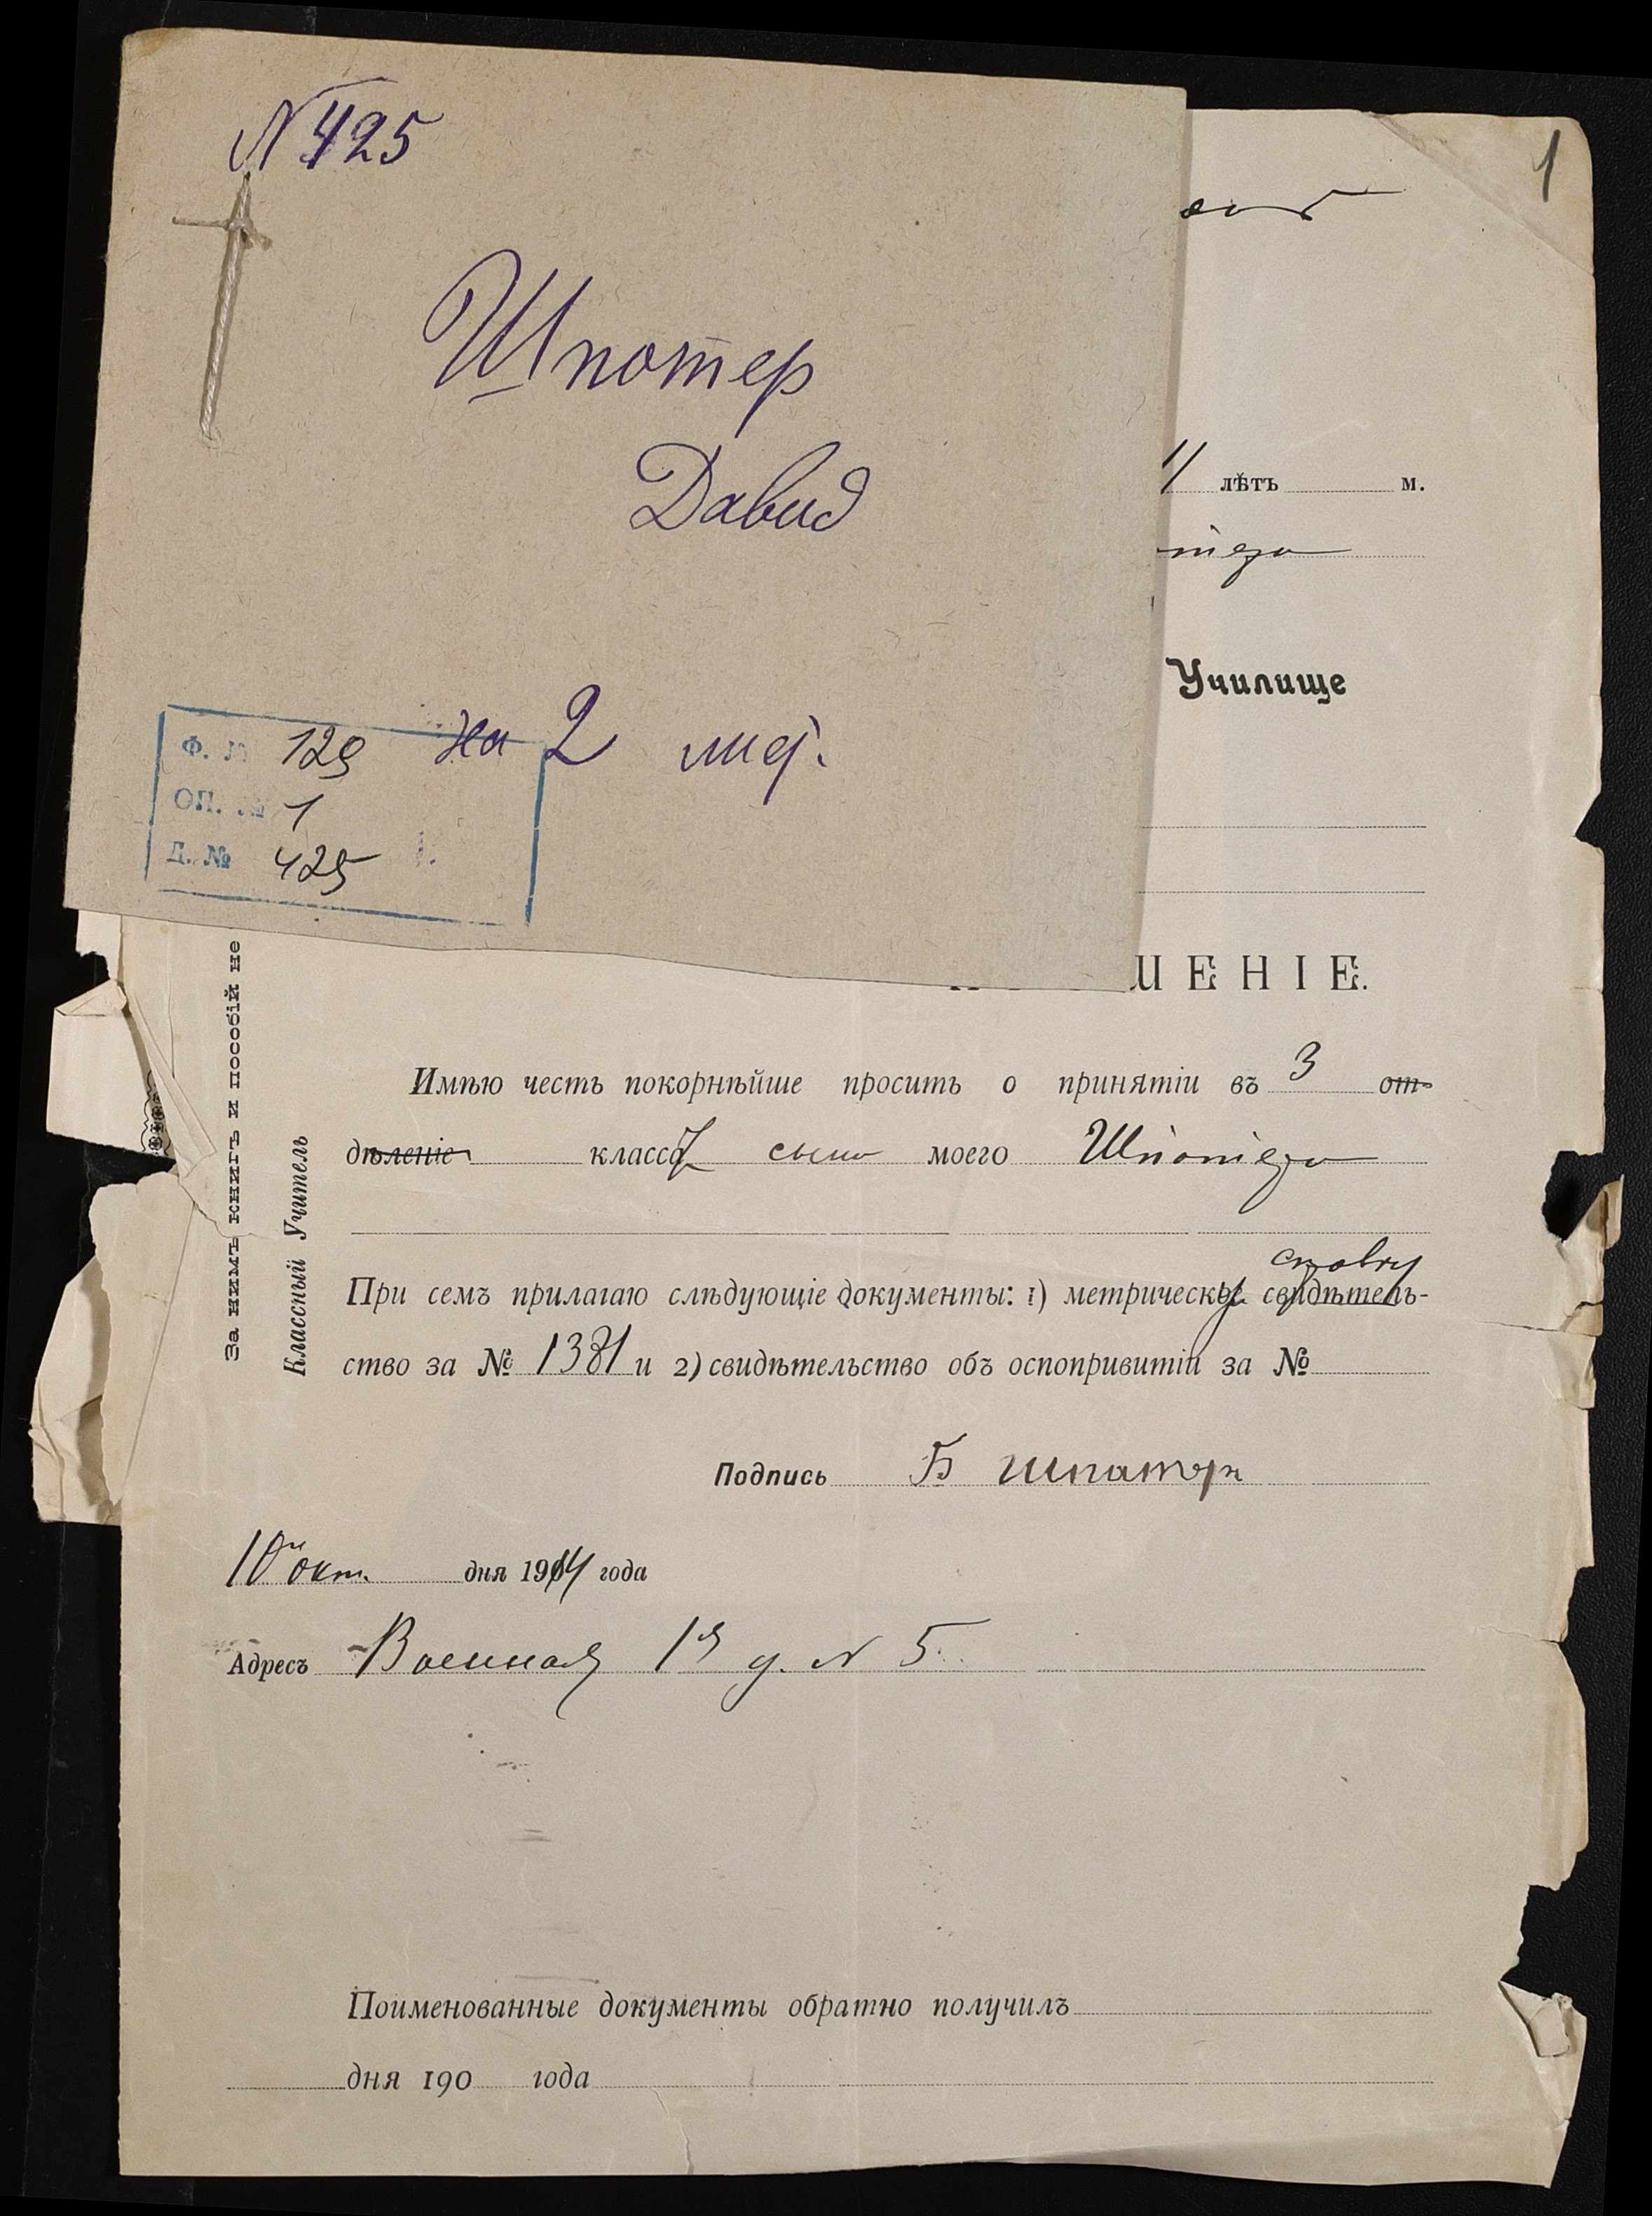 N 425
Шпотер
Давид
на 2 лис.
Ф. № 129
ОП. № 1
Д. № 425
1
11 лѣтъ м.
тера
Училище
ШЕНІЕ.
За нимъ книгъ и пособій не
Классный Учитель
Имѣю честь покорнѣйше просить о принятіи въ 3 от-
дѣленіе класса сына моего Шпотера
справку
При семъ прилагаю слѣдующіе документы: 1) метрическую свидѣтель-
ство за № 1381 и 2) свидѣтельство объ оспопривитіи за №
Подпись Б Шпатер
10 окт. дня 1914 года
Адресъ Военная 1я д. N 5
Поименованные документы обратно получилъ
дня 190 года